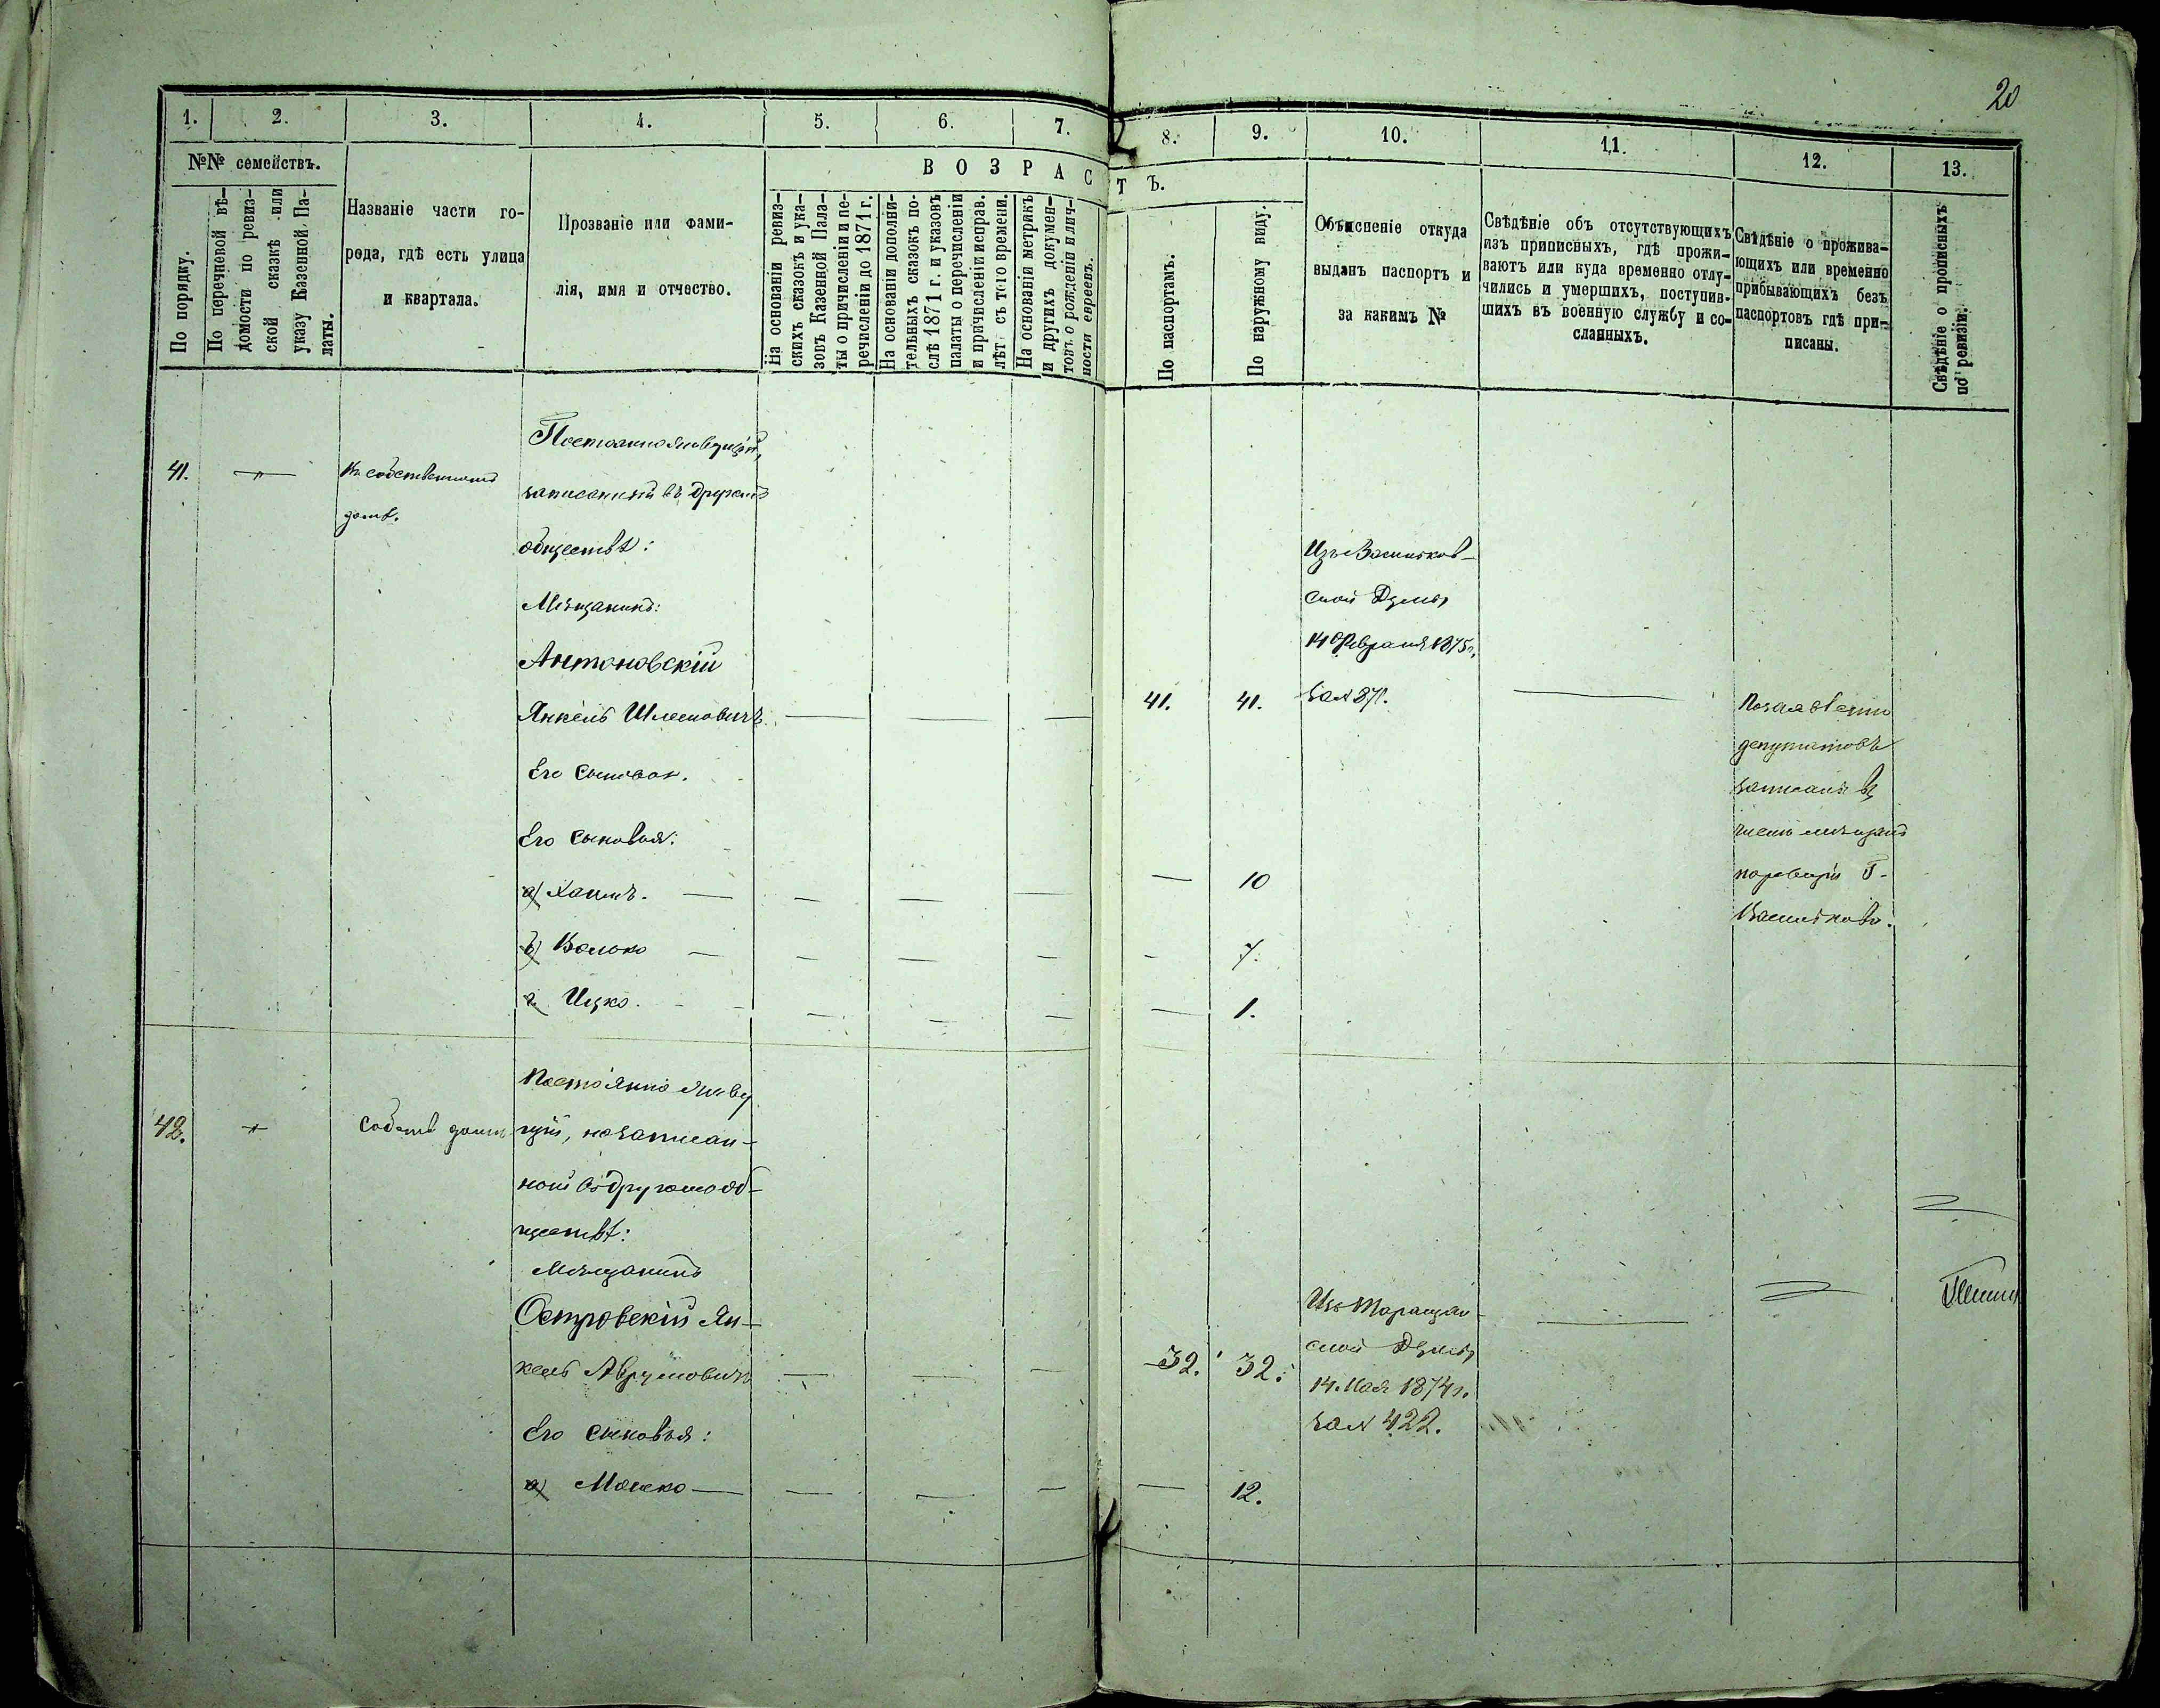 20
1. 2. 3. 4. 5. 6. 7. 8. 9. 10. 11. 12. 13.
№№ семействъ.
По порядку.
По перечневой вѣ-
домости по ревиз-
ской сказкѣ или
указу Казенной Па-
латы.
Названіе части го-
рода, гдѣ есть улица
и квартала.
Прозваніе или фами-
лія, имя и отчество.
ВОЗРАСТЪ.
На основаніи ревиз-
скихъ сказокъ и ука-
зовъ Казенной Пала-
ты о причисленіи и пе-
речисленіи до 1871 г.
На основаніи дополни-
тельныхъ сказокъ по-
слѣ 1871 г. и указовъ
палаты о перечисленіи
и причисленіи исправ.
лѣт съ того времени.
На основаніи метрикъ
и другихъ докумен-
товъ о рожденіи и лич-
ности евреевъ.
По паспортамъ.
По наружному виду.
Объясненіе откуда
выданъ паспортъ и
за какимъ №
Свѣдѣніе объ отсутствующихъ
изъ приписныхъ, гдѣ прожи-
ваютъ или куда временно отлу-
чились и умершихъ, поступив-
шихъ въ военную службу и со-
сланныхъ.
Свѣдѣніе о прожива-
ющихъ или временно
прибывающихъ безъ
паспортовъ гдѣ при-
писаны.
Свѣдѣніе о прописныхъ
по ревизіи.
41.
Въ собственномъ
домѣ.
Постоянно живущій,
записанный въ другомъ
обществѣ:
Мѣщанинъ:
Антоновскій
Янкель Шлемовичъ
Его сыновья:
а) Хаимъ.
б) Волько
в. Ицко.
41. 41.
10
7.
1.
Изъ Васильков-
ской Думы
14 Февраля 1875 г.
за № 871.
По заявленію
депутатовъ
записанъ въ
число мѣщанъ
города
Василькова.
42.
Собств домъ
Постоянно живу
щій, но записан-
ный въ другомъ об-
ществѣ:
Мѣщанинъ
Островскій Ян-
кель Аврумовичъ
Его сыновья:
а) Мошко
32. 32.
12.
Изъ Таращан-
ской Думы
14. Мая 1874 г.
за № 422.